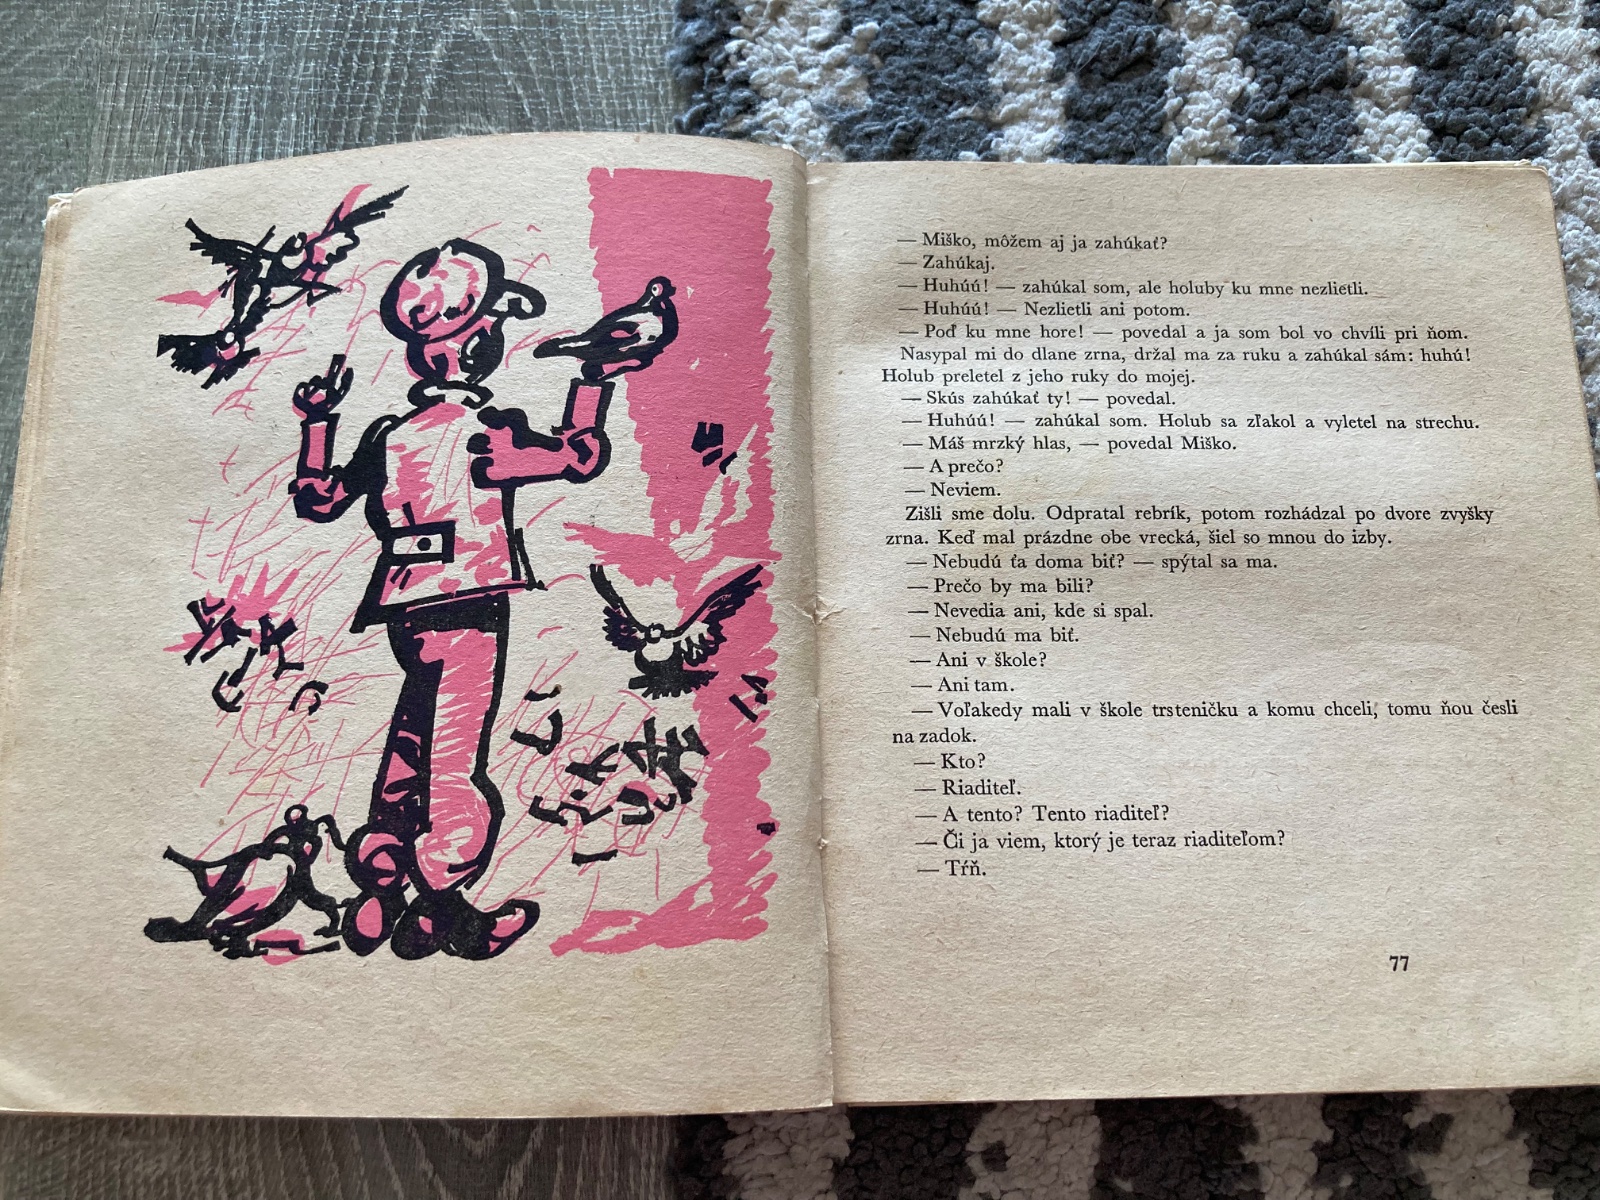 — Miško, môžem aj ja zahúkať?
— Zahúkaj.
— Huhúú! — zahúkal som, ale holuby ku mne nezlietli.
— Huhúú! — Nezlietli ani potom.
— Poď ku mne hore! — povedal a ja som bol vo chvíli pri ňom.
Nasypal mi do dlane zrna, držal ma za ruku a zahúkal sám: huhú!
Holub preletel z jeho ruky do mojej.
— Skús zahúkať ty! — povedal.
— Huhúú! — zahúkal som. Holub sa zľakol a vyletel na strechu.
— Máš mrzký hlas, — povedal Miško.
— A prečo?
— Neviem.
Zišli sme dolu. Odpratal rebrík, potom rozhádzal po dvore zvyšky
zrna. Keď mal prázdne obe vrecká, šiel so mnou do izby.
— Nebudú ťa doma biť? — spýtal sa ma.
— Prečo by ma bili?
— Nevedia ani, kde si spal.
— Nebudú ma biť.
— Ani v škole?
— Ani tam.
— Voľakedy mali v škole trsteničku a komu chceli, tomu ňou česli
na zadok.
— Kto?
— Riaditeľ.
— A tento? Tento riaditeľ?
— Či ja viem, ktorý je teraz riaditeľom?
— Tŕň.
77